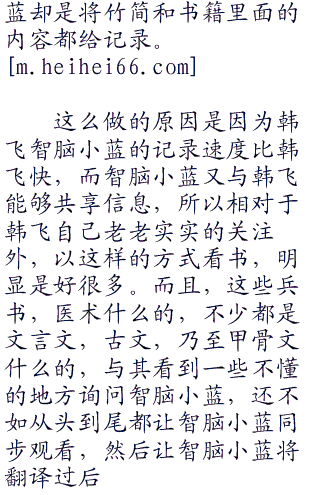 蓝却是将竹简和书籍里面的
内容都给记录。
[m.heihei66.com]
这么做的原因是因为韩
飞智脑小蓝的记录速度比韩
飞快，而智脑小蓝又与韩飞
能够共享信息，所以相对于
韩飞自己老老实实的关注
外，以这样的方式看书，明
显是好很多。而且，这些兵
书，医术什么的，不少都是
文言文，古文，乃至甲骨文
什么的，与其看到一些不懂
的地方询问智脑小蓝，还不
如从头到尾都让智脑小蓝同
步观看，然后让智脑小蓝将
翻译过后